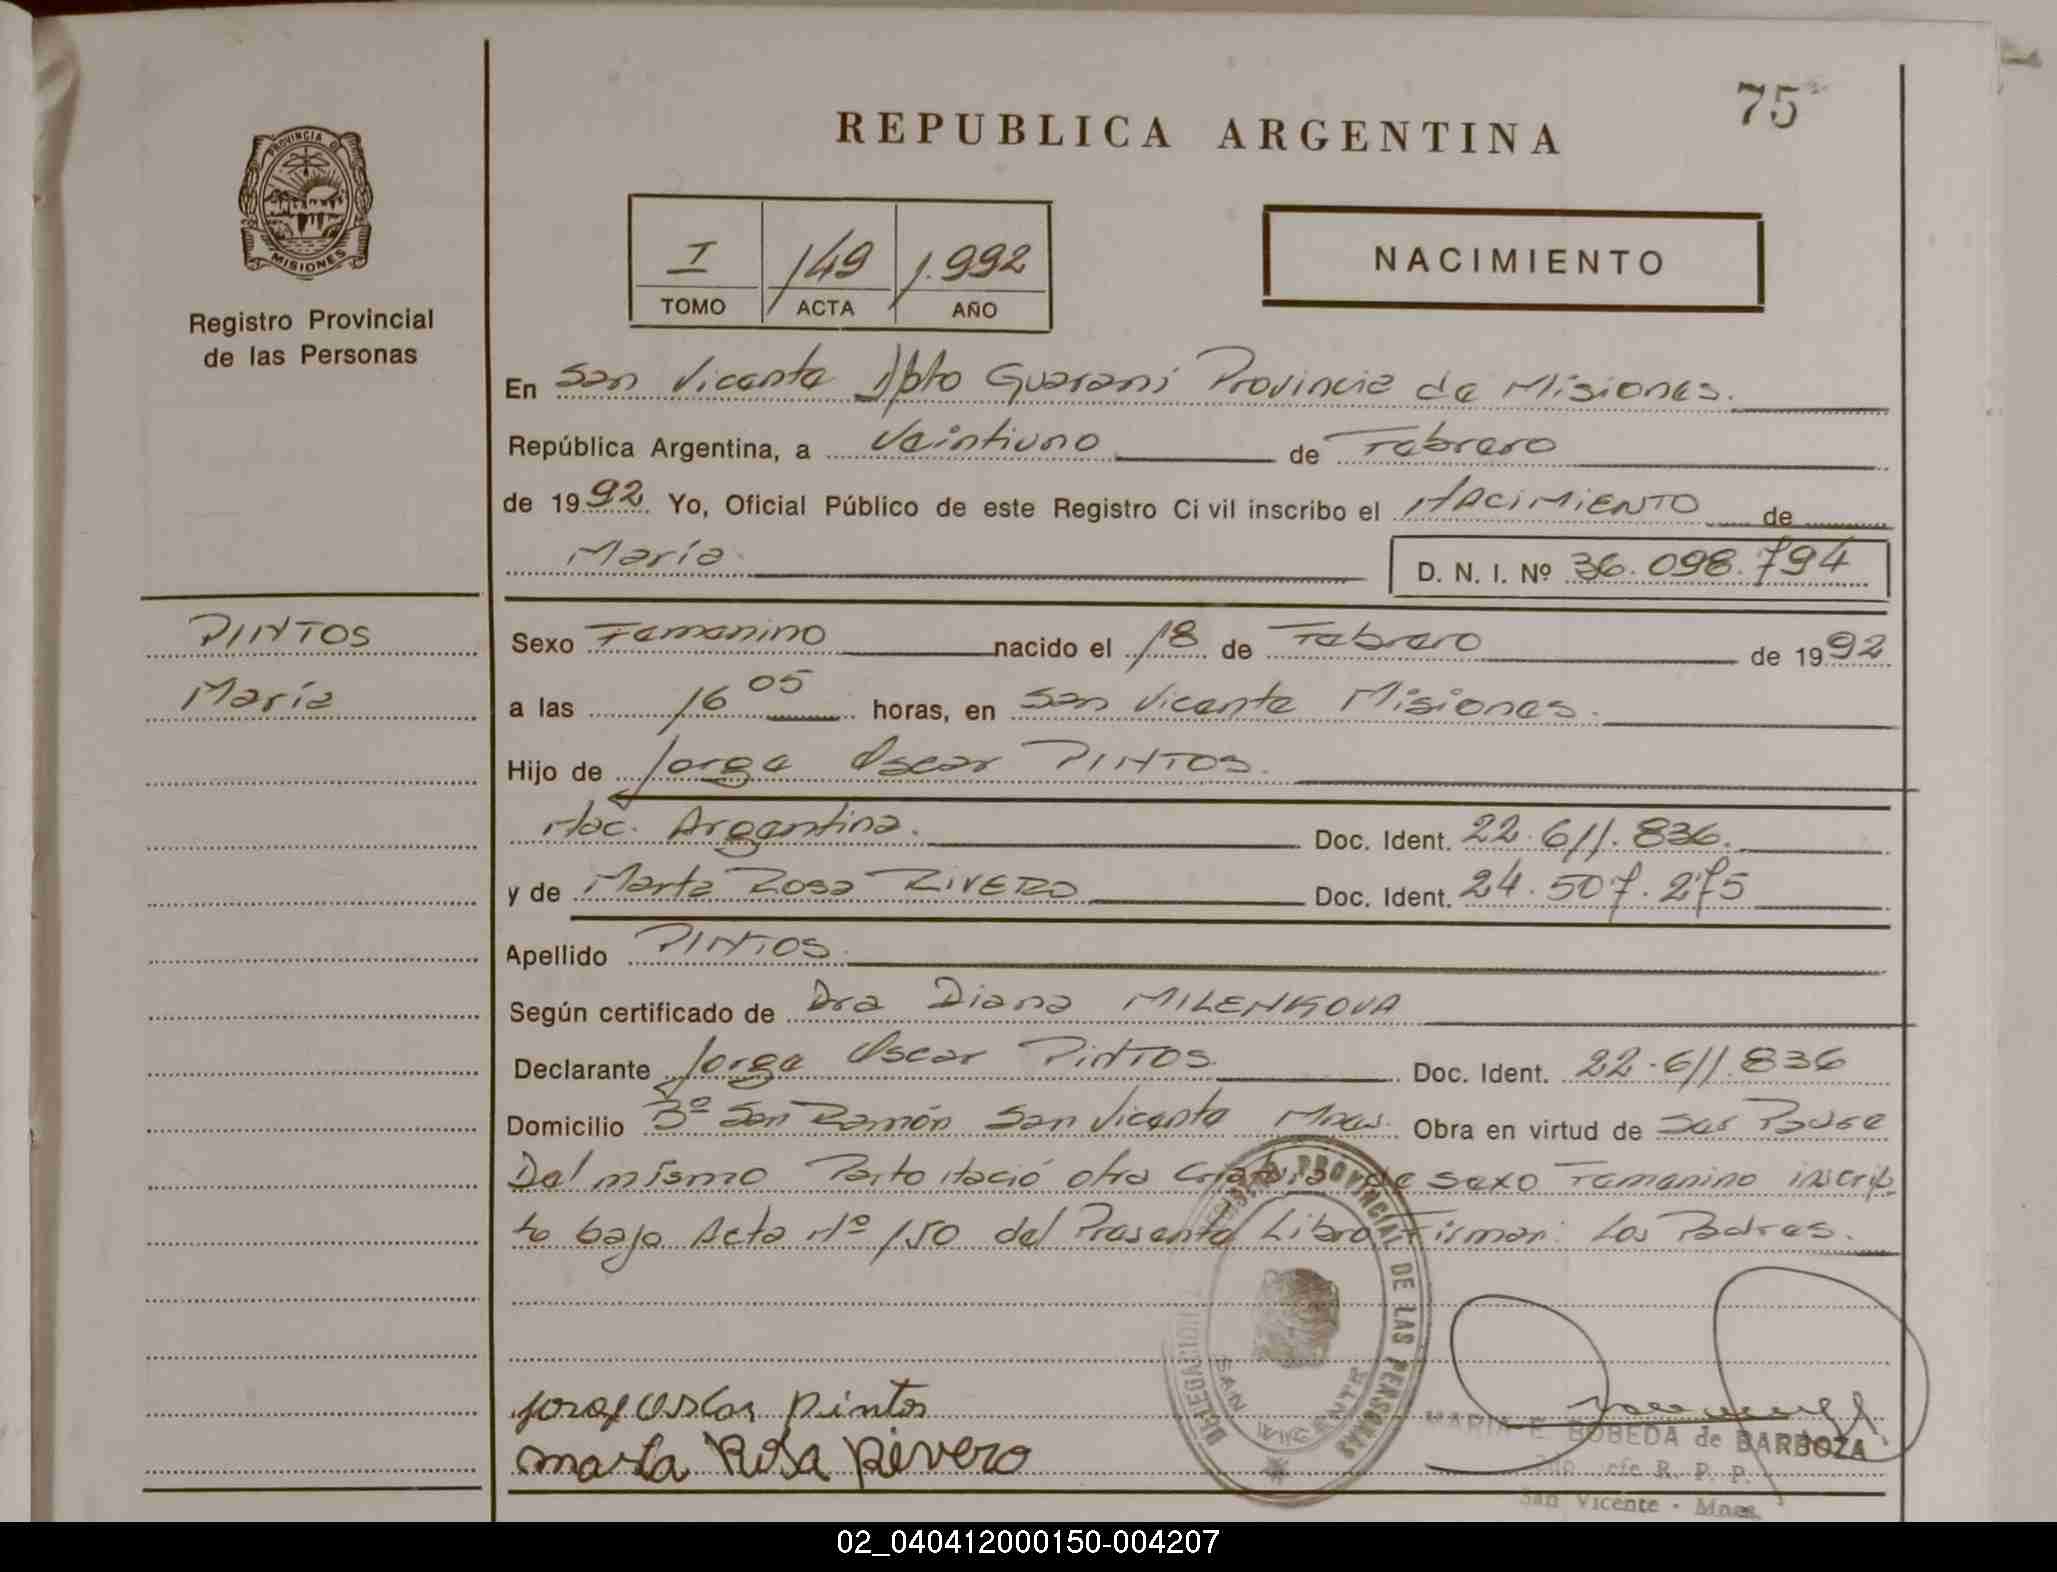 75
REPUBLICA ARGENTINA
PROVINCIA DE
MISIONES
Registro Provincial
de las Personas
I 149 1.992
TOMO ACTA AÑO
NACIMIENTO
En San Vicente Dpto Guaraní Provincia de Misiones.
República Argentina, a Veintiuno de Febrero
de 1992. Yo, Oficial Público de este Registro Civil inscribo el NACIMIENTO de
María D. N. I. Nº 36.098.794
PINTOS
María
Sexo Femenino nacido el 18 de Febrero de 1992
a las 16 05 horas, en San Vicente Misiones.
Hijo de Jorge Oscar PINTOS.
Nac. Argentina. Doc. Ident. 22.611.836.
y de Marta Rosa RIVERO Doc. Ident. 24.507.275
Apellido PINTOS.
Según certificado de Dra Diana MILENKOVA
Declarante Jorge Oscar PINTOS. Doc. Ident. 22.611.836
Domicilio Bº San Ramón San Vicente Mnes. Obra en virtud de Ser Padre
Del mismo Parto Nació otra criatura de sexo Femenino inscrip
to bajo Acta Nº 150 del Presente Libro Firman: Los Padres.
DELEGACION REGISTRO PROVINCIAL DE LAS PERSONAS
SAN VICENTE
Jorge Oscar Pintos
Marta Rosa Rivero
MARIA E. BOBEDA de BARBOZA
Jefe R. P. P.
San Vicente - Mnes.
02_040412000150-004207